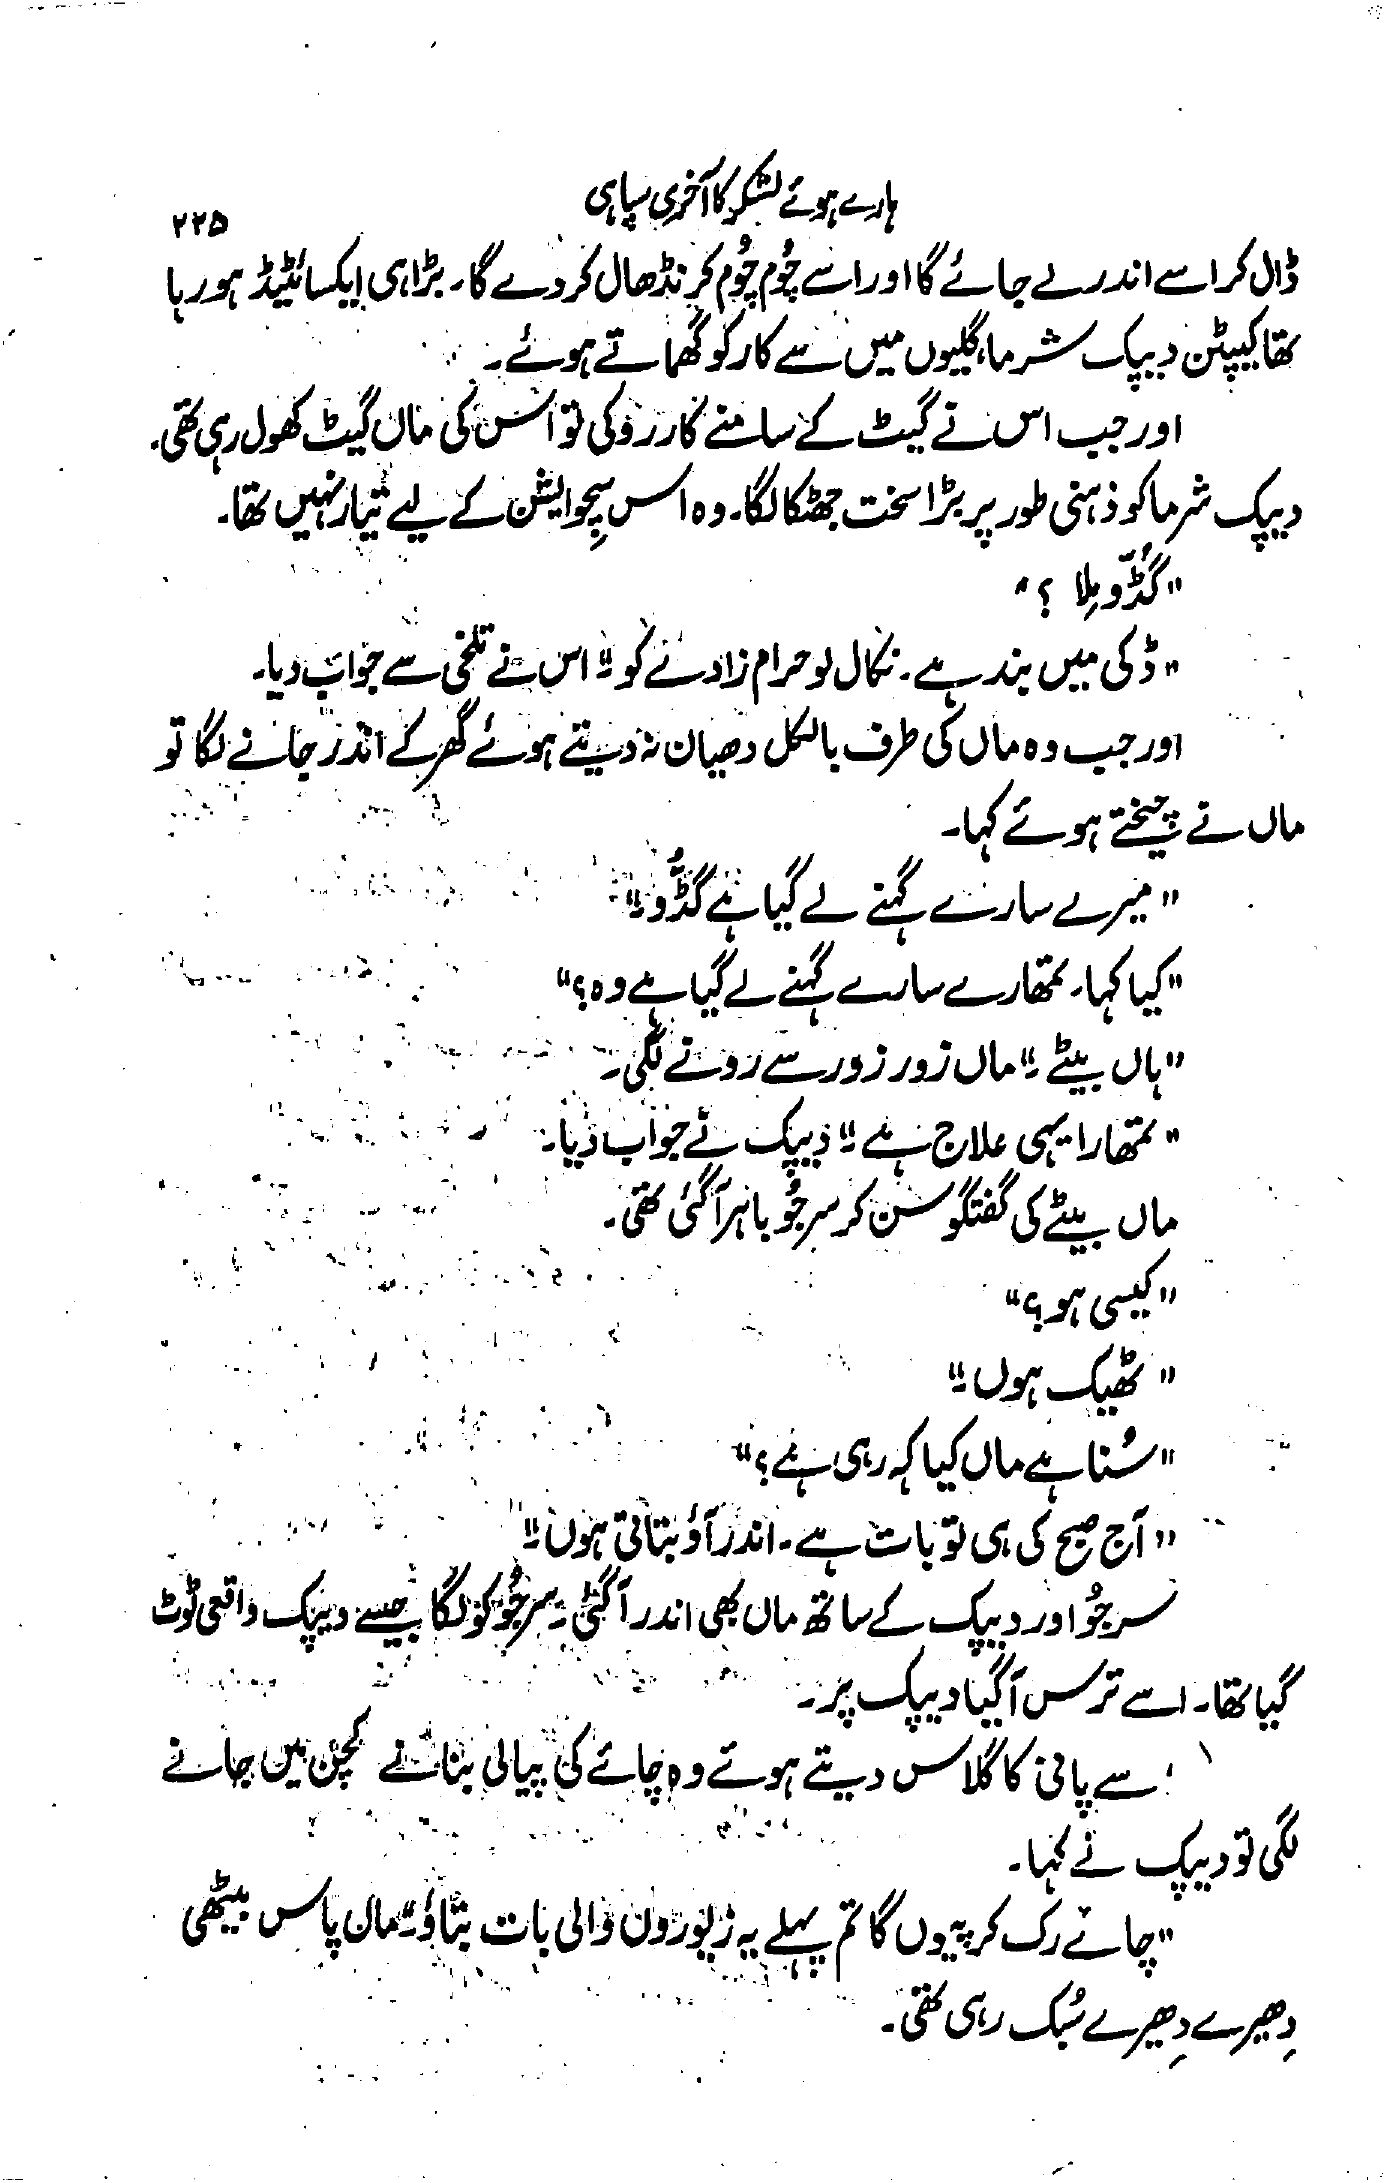 ہارے ہوئے لشکر کا آخری سپاہی
۲۲۵
ڈال کر اسے اندر لے جائے گا اور اسے چُوم چُوم کر نڈھال کر دے گا۔ بڑا ہی ایکسائٹیڈ ہو رہا
تھا کیپٹن دیپک شرما، گلیوں میں سے کار کو گھماتے ہوئے۔
اور جب اس نے گیٹ کے سامنے کار روکی تو اس کی ماں گیٹ کھول رہی تھی۔
دیپک شرما کو ذہنی طور پر بڑا سخت جھٹکا لگا۔ وہ اس سِچوایشن کے لیے تیار نہیں تھا۔
"گُڈّو مِلا ؟"
"ڈکی میں بند ہے۔ نکال لو حرام زادے کو۔" اس نے تلخی سے جواب دیا۔
اور جب وہ ماں کی طرف بالکل دھیان نہ دیتے ہوئے گھر کے اندر جانے لگا تو
ماں نے چیختے ہوئے کہا۔
"میرے سارے گہنے لے گیا ہے گُڈّو۔"
"کیا کہا۔ تمھارے سارے گہنے لے گیا ہے وہ؟"
"ہاں بیٹے۔" ماں زور زور سے رونے لگی۔
"تمھارا یہی علاج ہے۔" دیپک نے جواب دیا۔
ماں بیٹے کی گفتگو سن کر سرجُو باہر آ گئی تھی۔
"کیسی ہو؟"
"ٹھیک ہوں۔"
"سُنا ہے ماں کیا کہہ رہی ہے؟"
"آج صبح کی ہی تو بات ہے۔ اندر آؤ بتاتی ہوں۔"
سرجُو اور دیپک کے ساتھ ماں بھی اندر آ گئی۔ سرجُو کو لگا جیسے دیپک واقعی ٹوٹ
گیا تھا۔ اسے ترس آ گیا دیپک پر۔
اسے پانی کا گلاس دیتے ہوئے وہ چائے کی پیالی بنانے کچن میں جانے
لگی تو دیپک نے کہا۔
"چائے رک کر پیوں گا تم پہلے یہ زیوروں والی بات بتاؤ۔" ماں پاس بیٹھی
دِھیرے دِھیرے سُبک رہی تھی۔